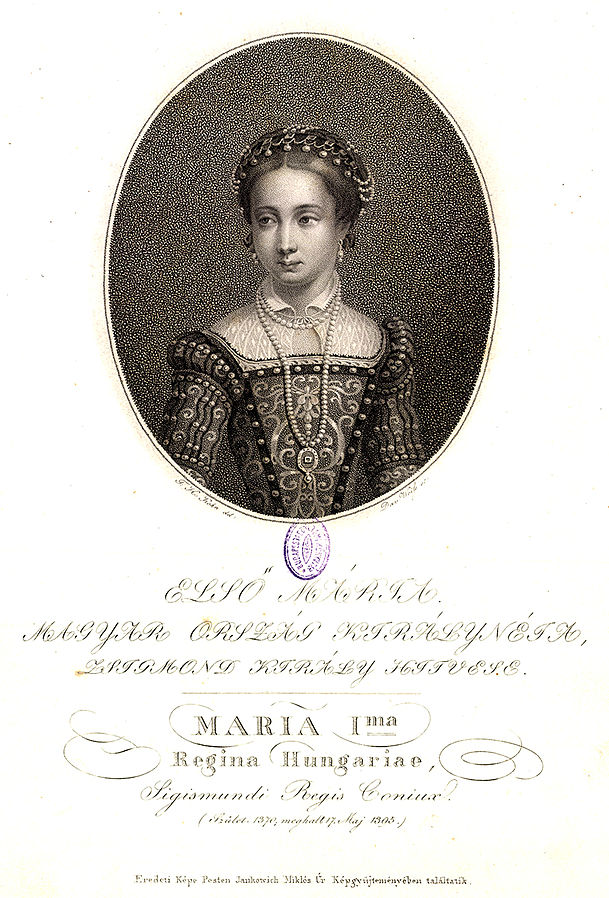 del.
ELSŐ MÁRIA.
MAGYAR ORSZÁG KIRÁLYNÉJA,
ZSIGMOND KIRÁLY HITVESE.
MARIA Ima
Regina Hungariae,
Sigismundi Regis Coniux.
(Szület. 1370, meghalt 17. Maj 1395.)
Eredeti Képe Pesten Jankowich Miklós Úr Képgyüjteményében találtatik.